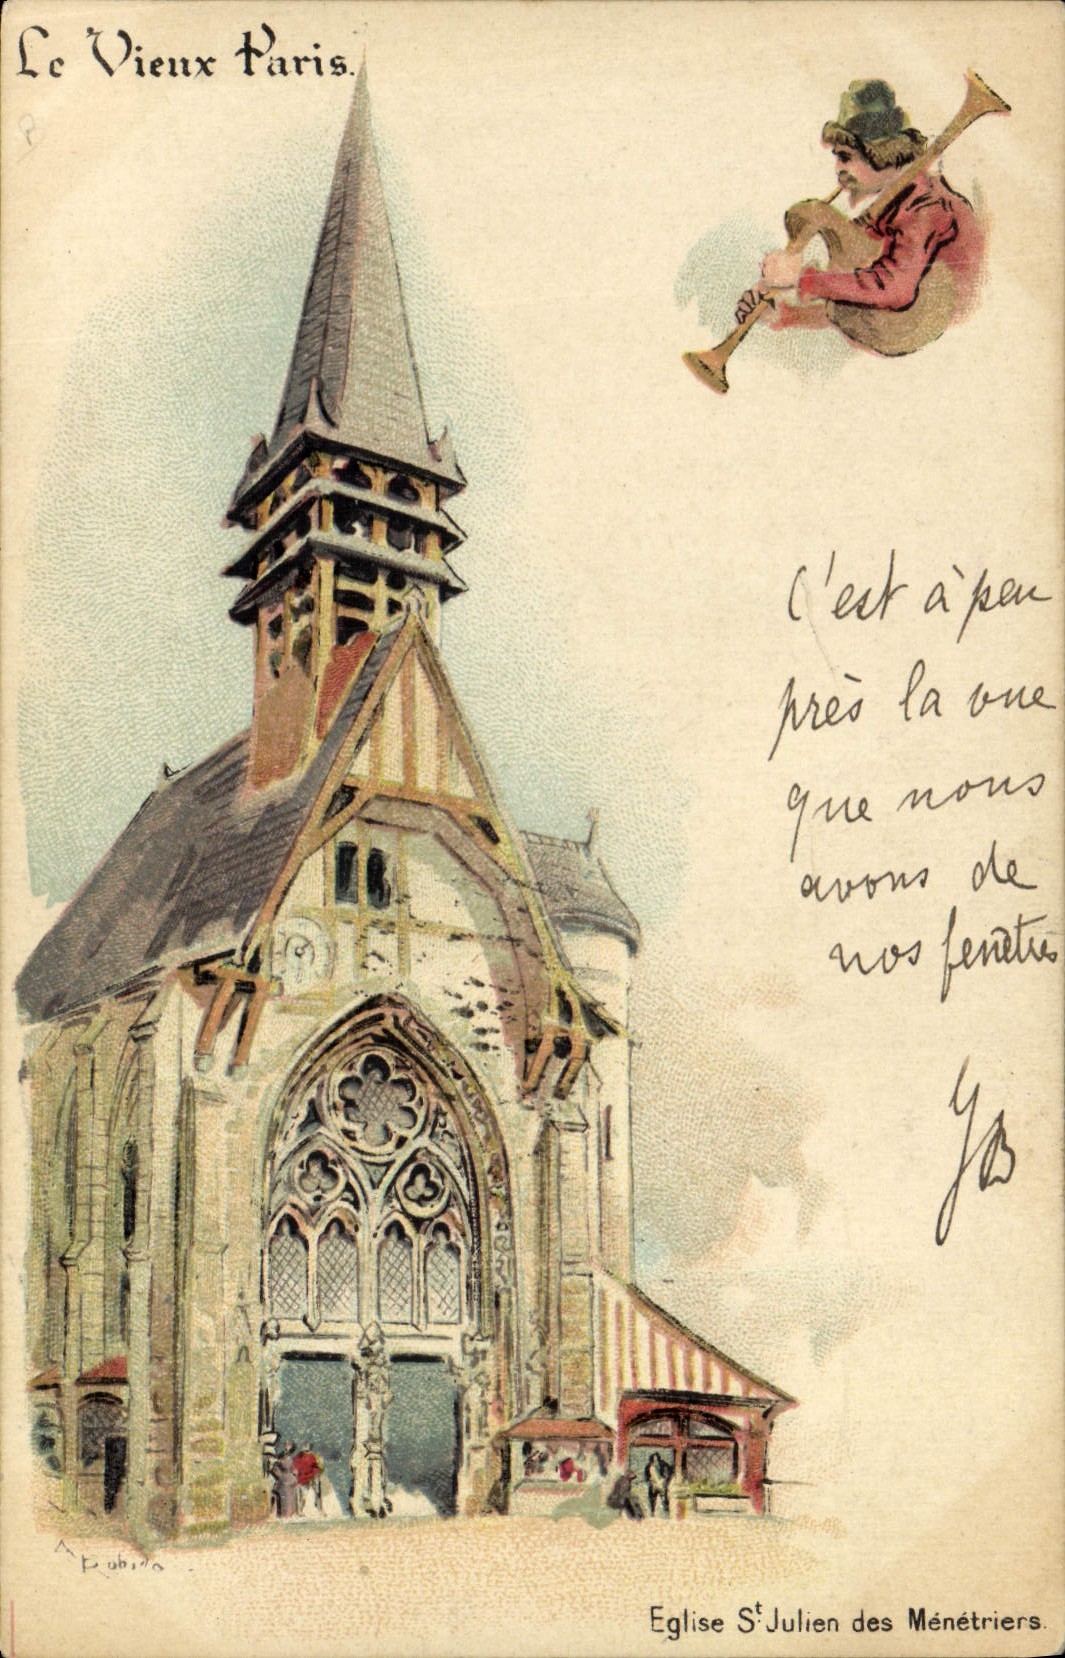 Le Vieux Paris.
C'est à peu
près la vue
que nous
avons de
nos fenêtres
YB
A Robida
Eglise St Julien des Ménétriers.